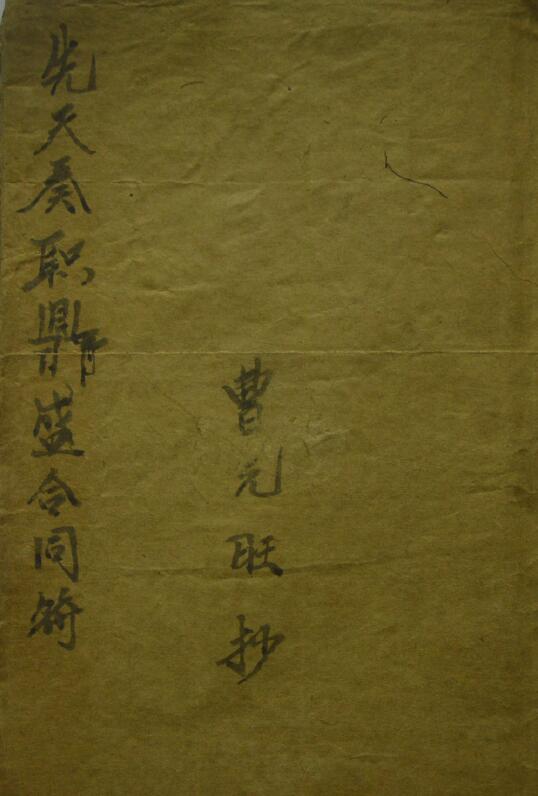 先天奏职鼎盛合同符
曹元旺抄